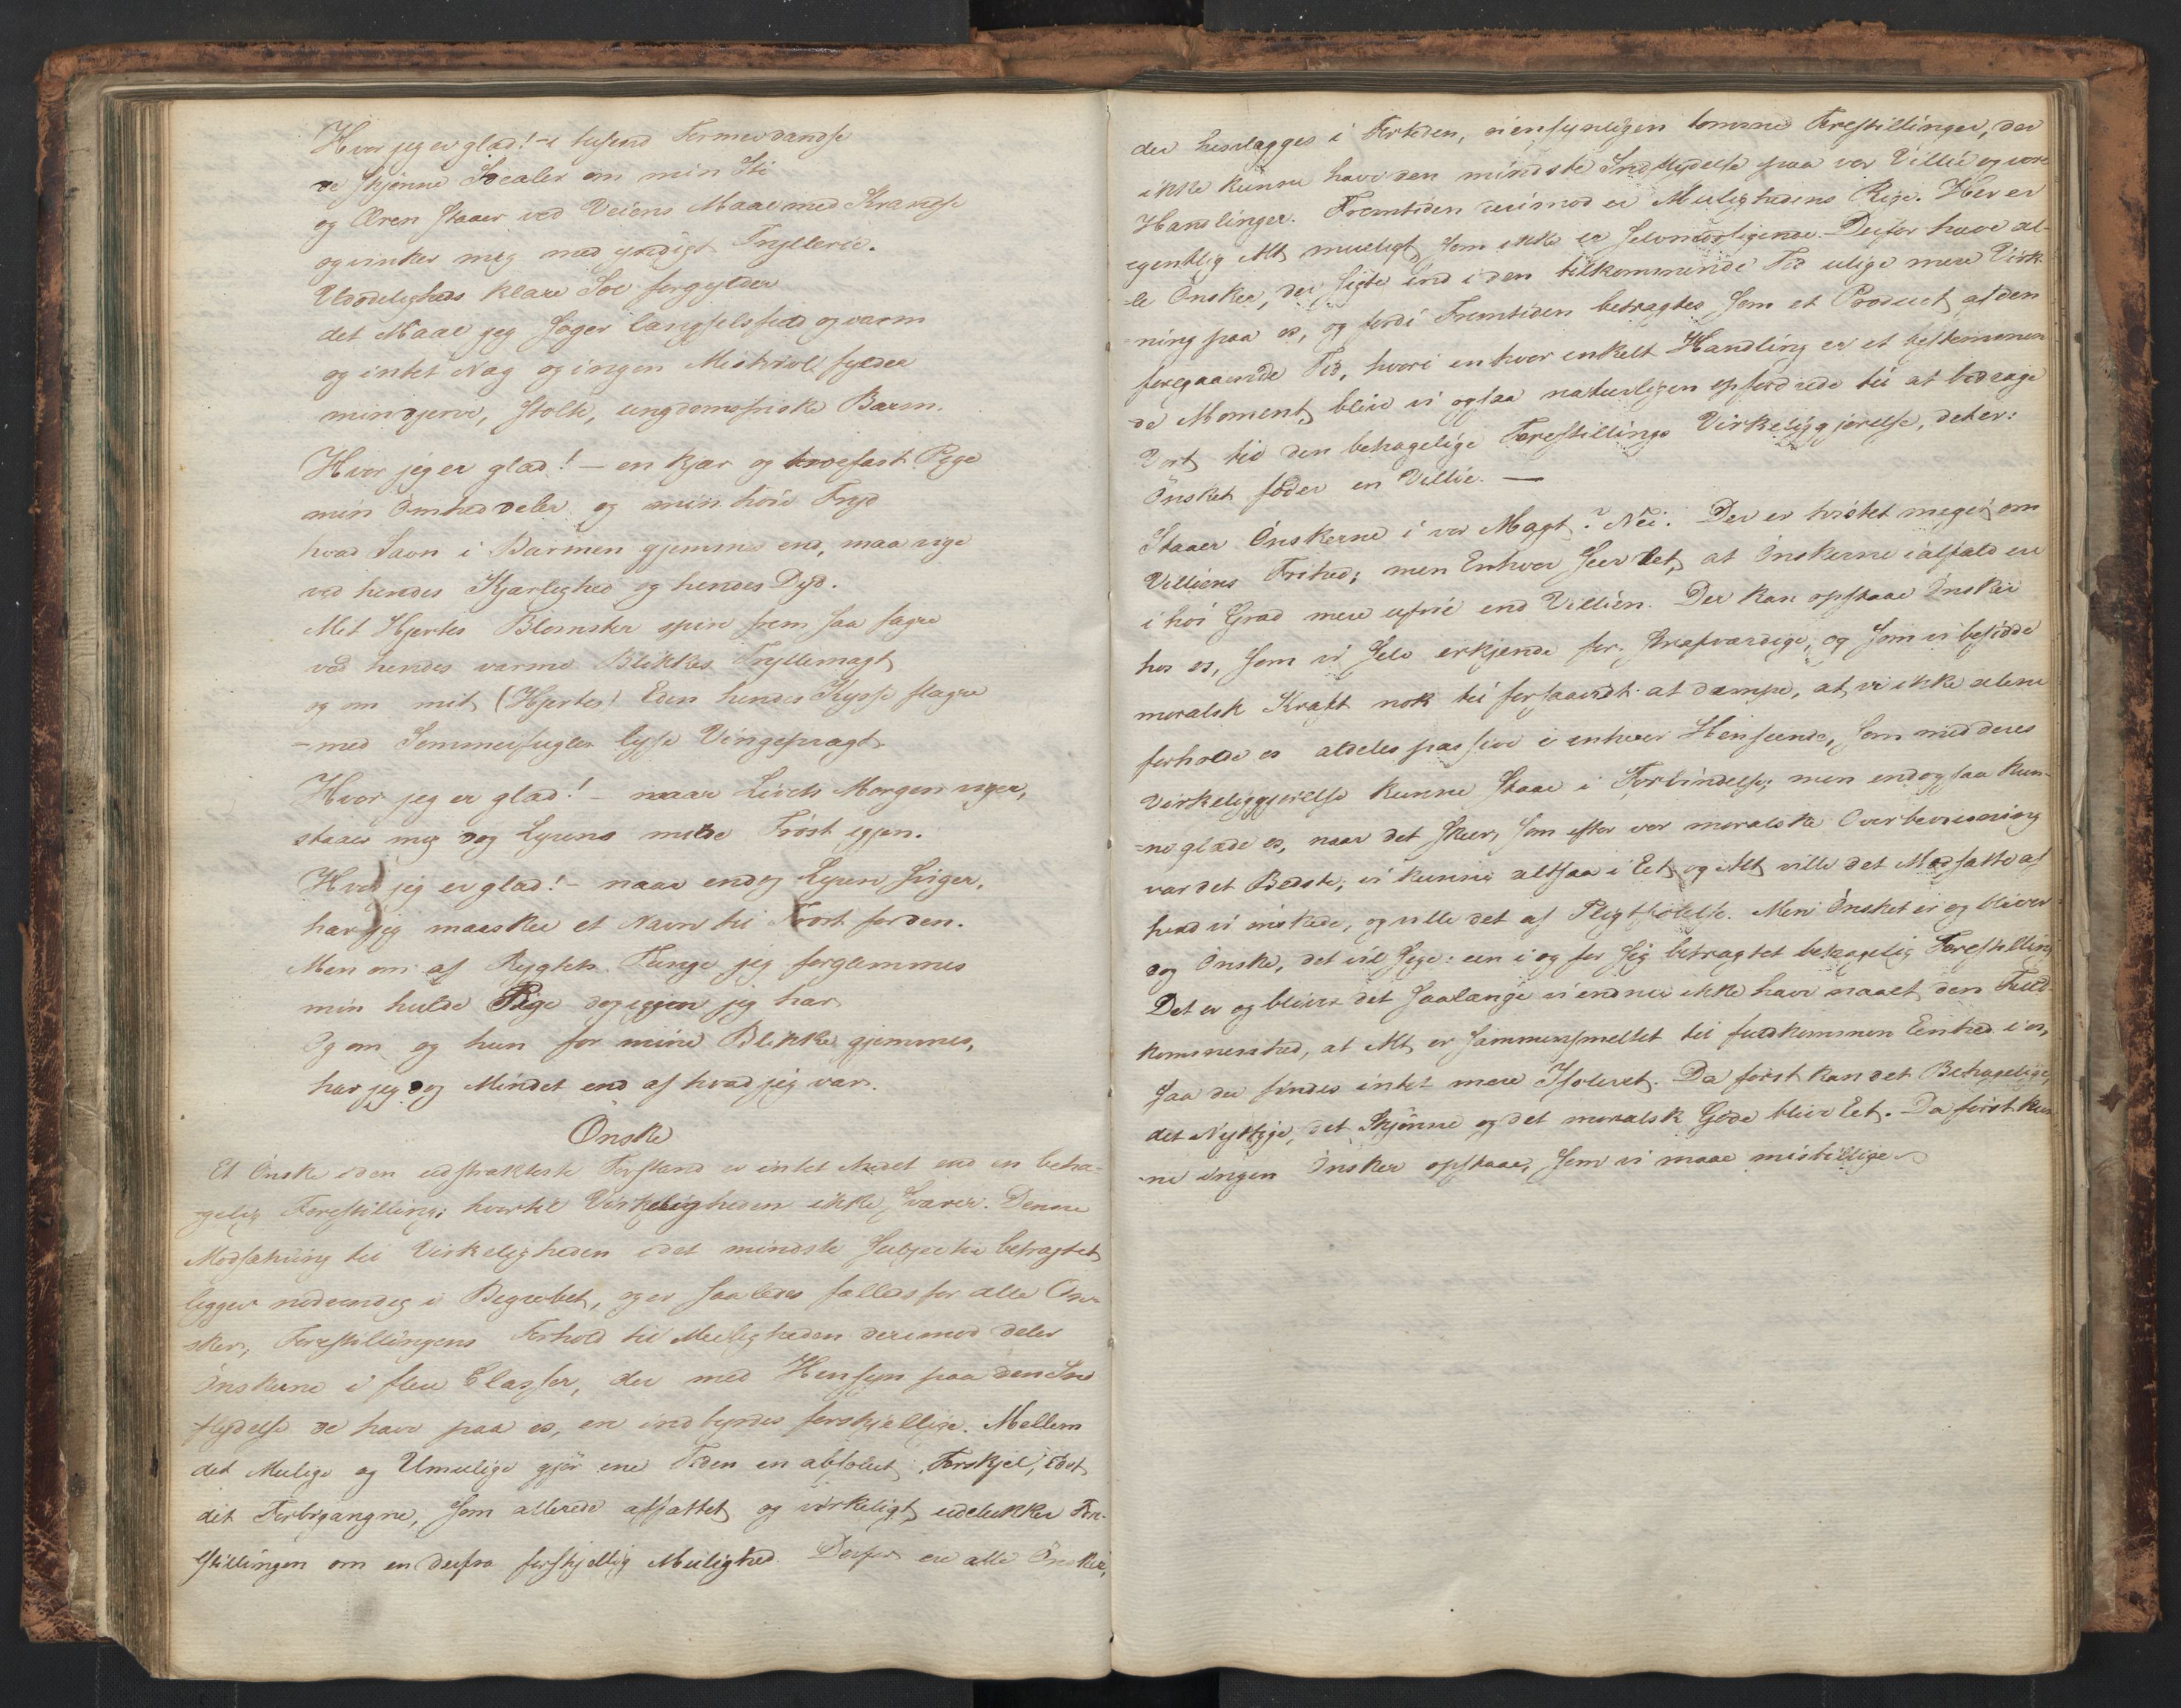 Hvor jeg er glad! - i tusend Former dandse
de skjønne Idealer om min Sti
og Æren staaer ved Veiens Maal med Krandse
og vinker mig med yndigt Trylleri.
Udødeligheds klare Sol forgylder
det Maal jeg søger længselsfuld og varm
og intet Nag og ingen Mistvivl fylder
min djerve, stolte, ungdomsfriske Barm.
Hvor jeg er glad! - en kjær og trofast Pige
min Ømhed deler og min høie Fryd
hvad Savn i Barmen gjemmes end, maa vige
ved hendes Kjærlighed og hendes Dyd.
Mit Hjertes Blomster spire frem saa fagre
ved hendes varme Blikkes Tryllemagt
og om mit (Hjertes) Eden hendes Kysse flagre
- med Sommerfugles lyse Vingepragt.
Hvor jeg er glad! - naar Livets Morgen viger,
staaer mig dog Lyrens milde Trøst igjen.
Hvor jeg er glad! - naar endog Lyren sviger,
har jeg maaskee et Navn til Trøst for den.
Men om af Rygtets Tunge jeg forglemmes
min hulde Pige dog igjen jeg har
Og om og hun for mine Blikke gjemmes,
har jeg dog Mindet end af hvad jeg var.
Ønske
Et Ønske i den udstrakteste Forstand er intet Andet end en beha-
gelig Forestilling; hvortil Virkeligheden ikke svarer. Denne
Modsætning til Virkeligheden i det mindste subjectiv betragtet
ligger nødvendig i Begrebet, og er saaledes fælleds for alle Øn-
sker; Forestillingens Forhold til Muligheden derimod deler
Ønskerne i flere Classer, der med Hensyn paa den Ind
flydelse de have paa os, ere indbyrdes forskjellige. Mellem
det Mulige og Umulige gjør ene Tiden en absolut Forskjel, idet
det Forbigangne, som allerede afsattet og virkeligt, udelukker Fore-
stillingen om en derfra forskjellig Mulighed. Derfor ere alle Ønsker,
der henlægges i Fortiden, øiensynligen tomme Forestillinger, der
ikke kunne have den mindste Indflydelse paa vor Villie og vore
Handlinger. Fremtiden derimod er Mulighedens Rige. Her er
egentlig Alt muligt, som ikke er selvmodsigende. Derfor have al-
le Ønsker, der sigte ind i den tilkommende Tid ulige mere Virk-
ning paa os, og fordi Fremtiden betragtes som et Product af den
foregaaende Tid, hvori enhver enkelt Handling er et bestemmen-
de Moment, blive vi ogsaa naturligen opfordrede til at bidrage
Vort til den behagelige Forestillings Virkeliggjørelse, det er:
Ønsket føder en Villie. —
Staaer Ønskerne i vor Magt? Nei. Der er tvistet meget om
Villiens Frihed; men Enhver seer let, at Ønskerne i alfald ere
i høi Grad mere ufrie end Villien. Der kan opstaae Ønsker
hos os, som vi selv erkjende for strafværdige, og som vi besidde
moralsk Kraft nok til forsaavidt at dæmpe, at vi ikke alene
forholde os aldeles passive i enhver Henseende, som med deres
Virkeliggjørelse kunne staae i Forbindelse; men endog saa kun-
ne glæde os, naar det skeer, som efter vor moralske Overbeviisning
var det Bedste; vi kunne altsaa i Eet og Alt ville det Modsatte af
hvad vi ønskede, og ville det af Pligtfølelse. Men Ønsket er og bliver
dog Ønske, det vil sige: een i og for sig betragtet behagelig Forestilling
Det er og bliver det saalænge vi endnu ikke have naaet den Fuld-
kommenhed, at Alt er sammensmeltet til fuldkommen Eenhed i os,
saa der findes intet mere Isoleret. Da først kan det Behagelige,
det Nyttige, det Skjønne og det moralsk Gode blive Eet. Da først kun-
ne ingen Ønsker opstaae, som vi maae misbillige